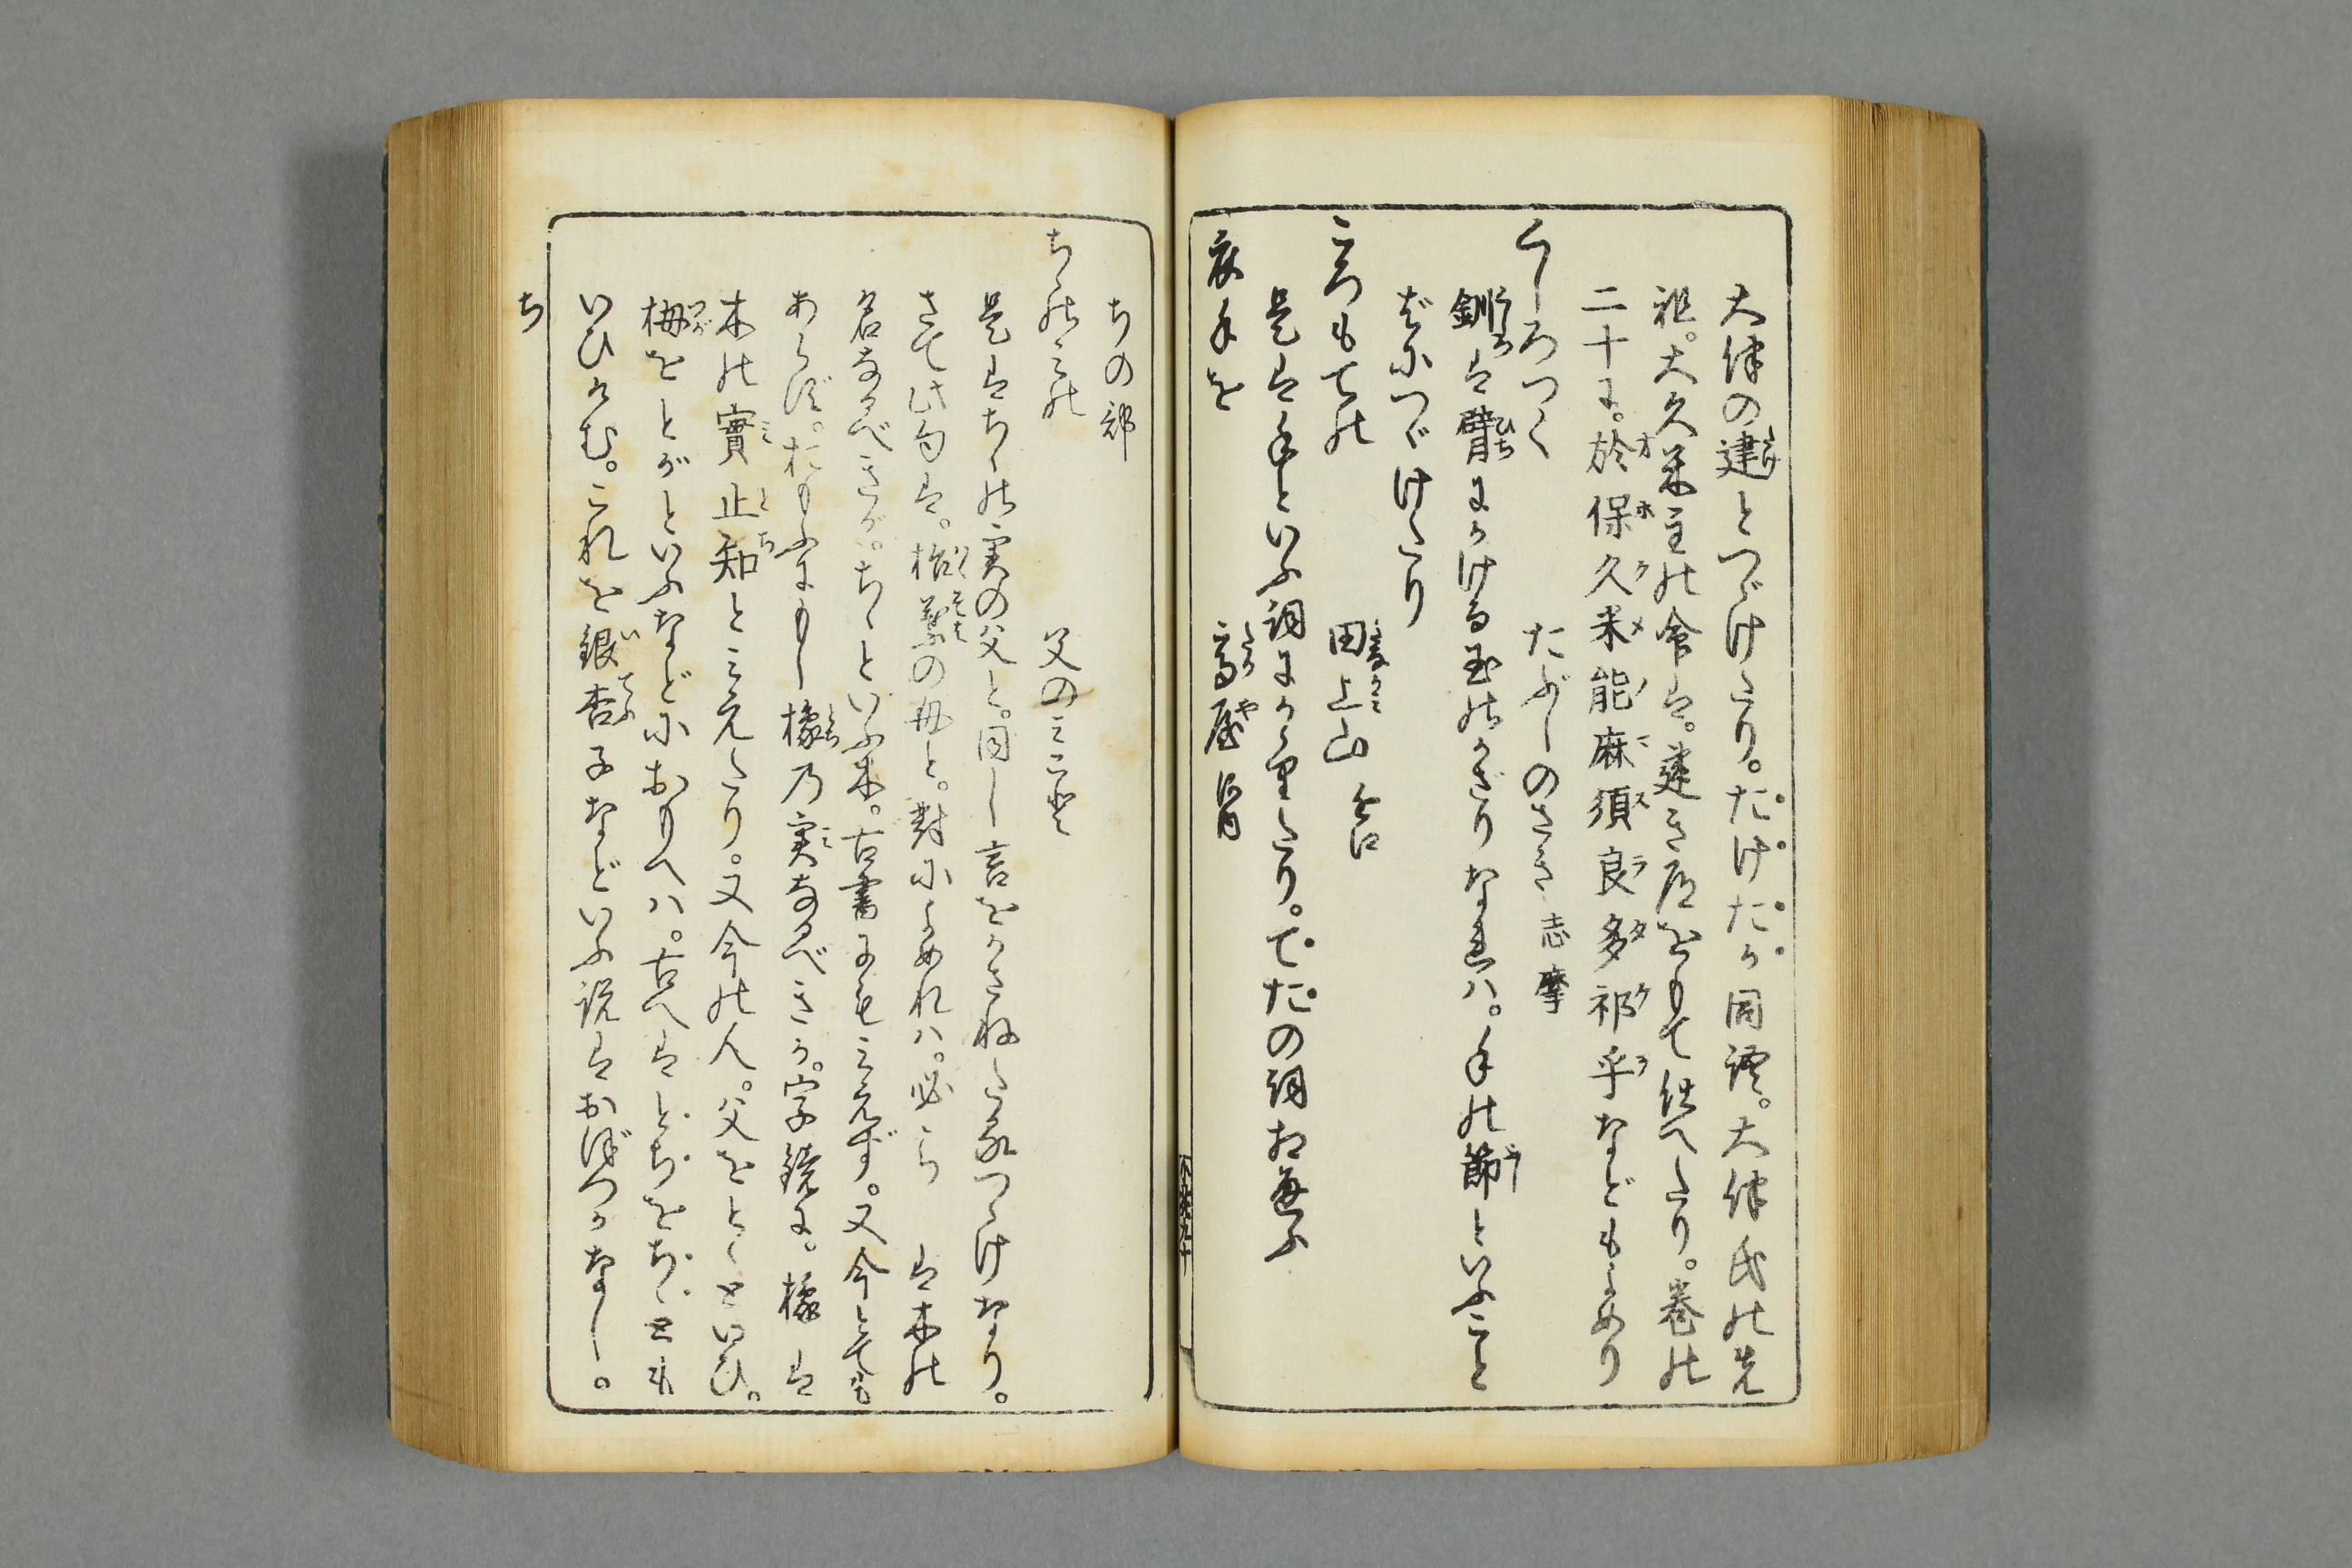 大伴の建とつゞけたり。たけたか同語。大伴氏の先
祖。大久米主の命は。建き名をもて仕へたり。巻の
二十に。於保久米能麻須良多祁乎などもよめり
くしろつく たぶしのさき 志摩
釧は臂にかける玉のかざりなれハ。手の節といふこと
ばにつゞけたり
ころもでの 田上山 名
是は手といふ詞にかゝりたり。てたの詞相兼ふ
衣手を 高屋
ちの部
ちゝのみの 父のみこと
是はちゝの実の父と。同し言をかさねたるつゝけなり。
さて此句は。柞葉の母と。対によめれハ。必ら は木の
名なるべきが。ちゝといふ木。古書にもみえず。又今とても
あらず。おもふにもし橡乃実なるべきか。字鏡に。橡は
木の實止知とみえたり。又今の人。父をとゝといひ。
栂をとがといふなどにおもへハ。古へはとちをちゝとも
いひけむ。これを銀杏子などいふ説はおぼつかなし。
ち